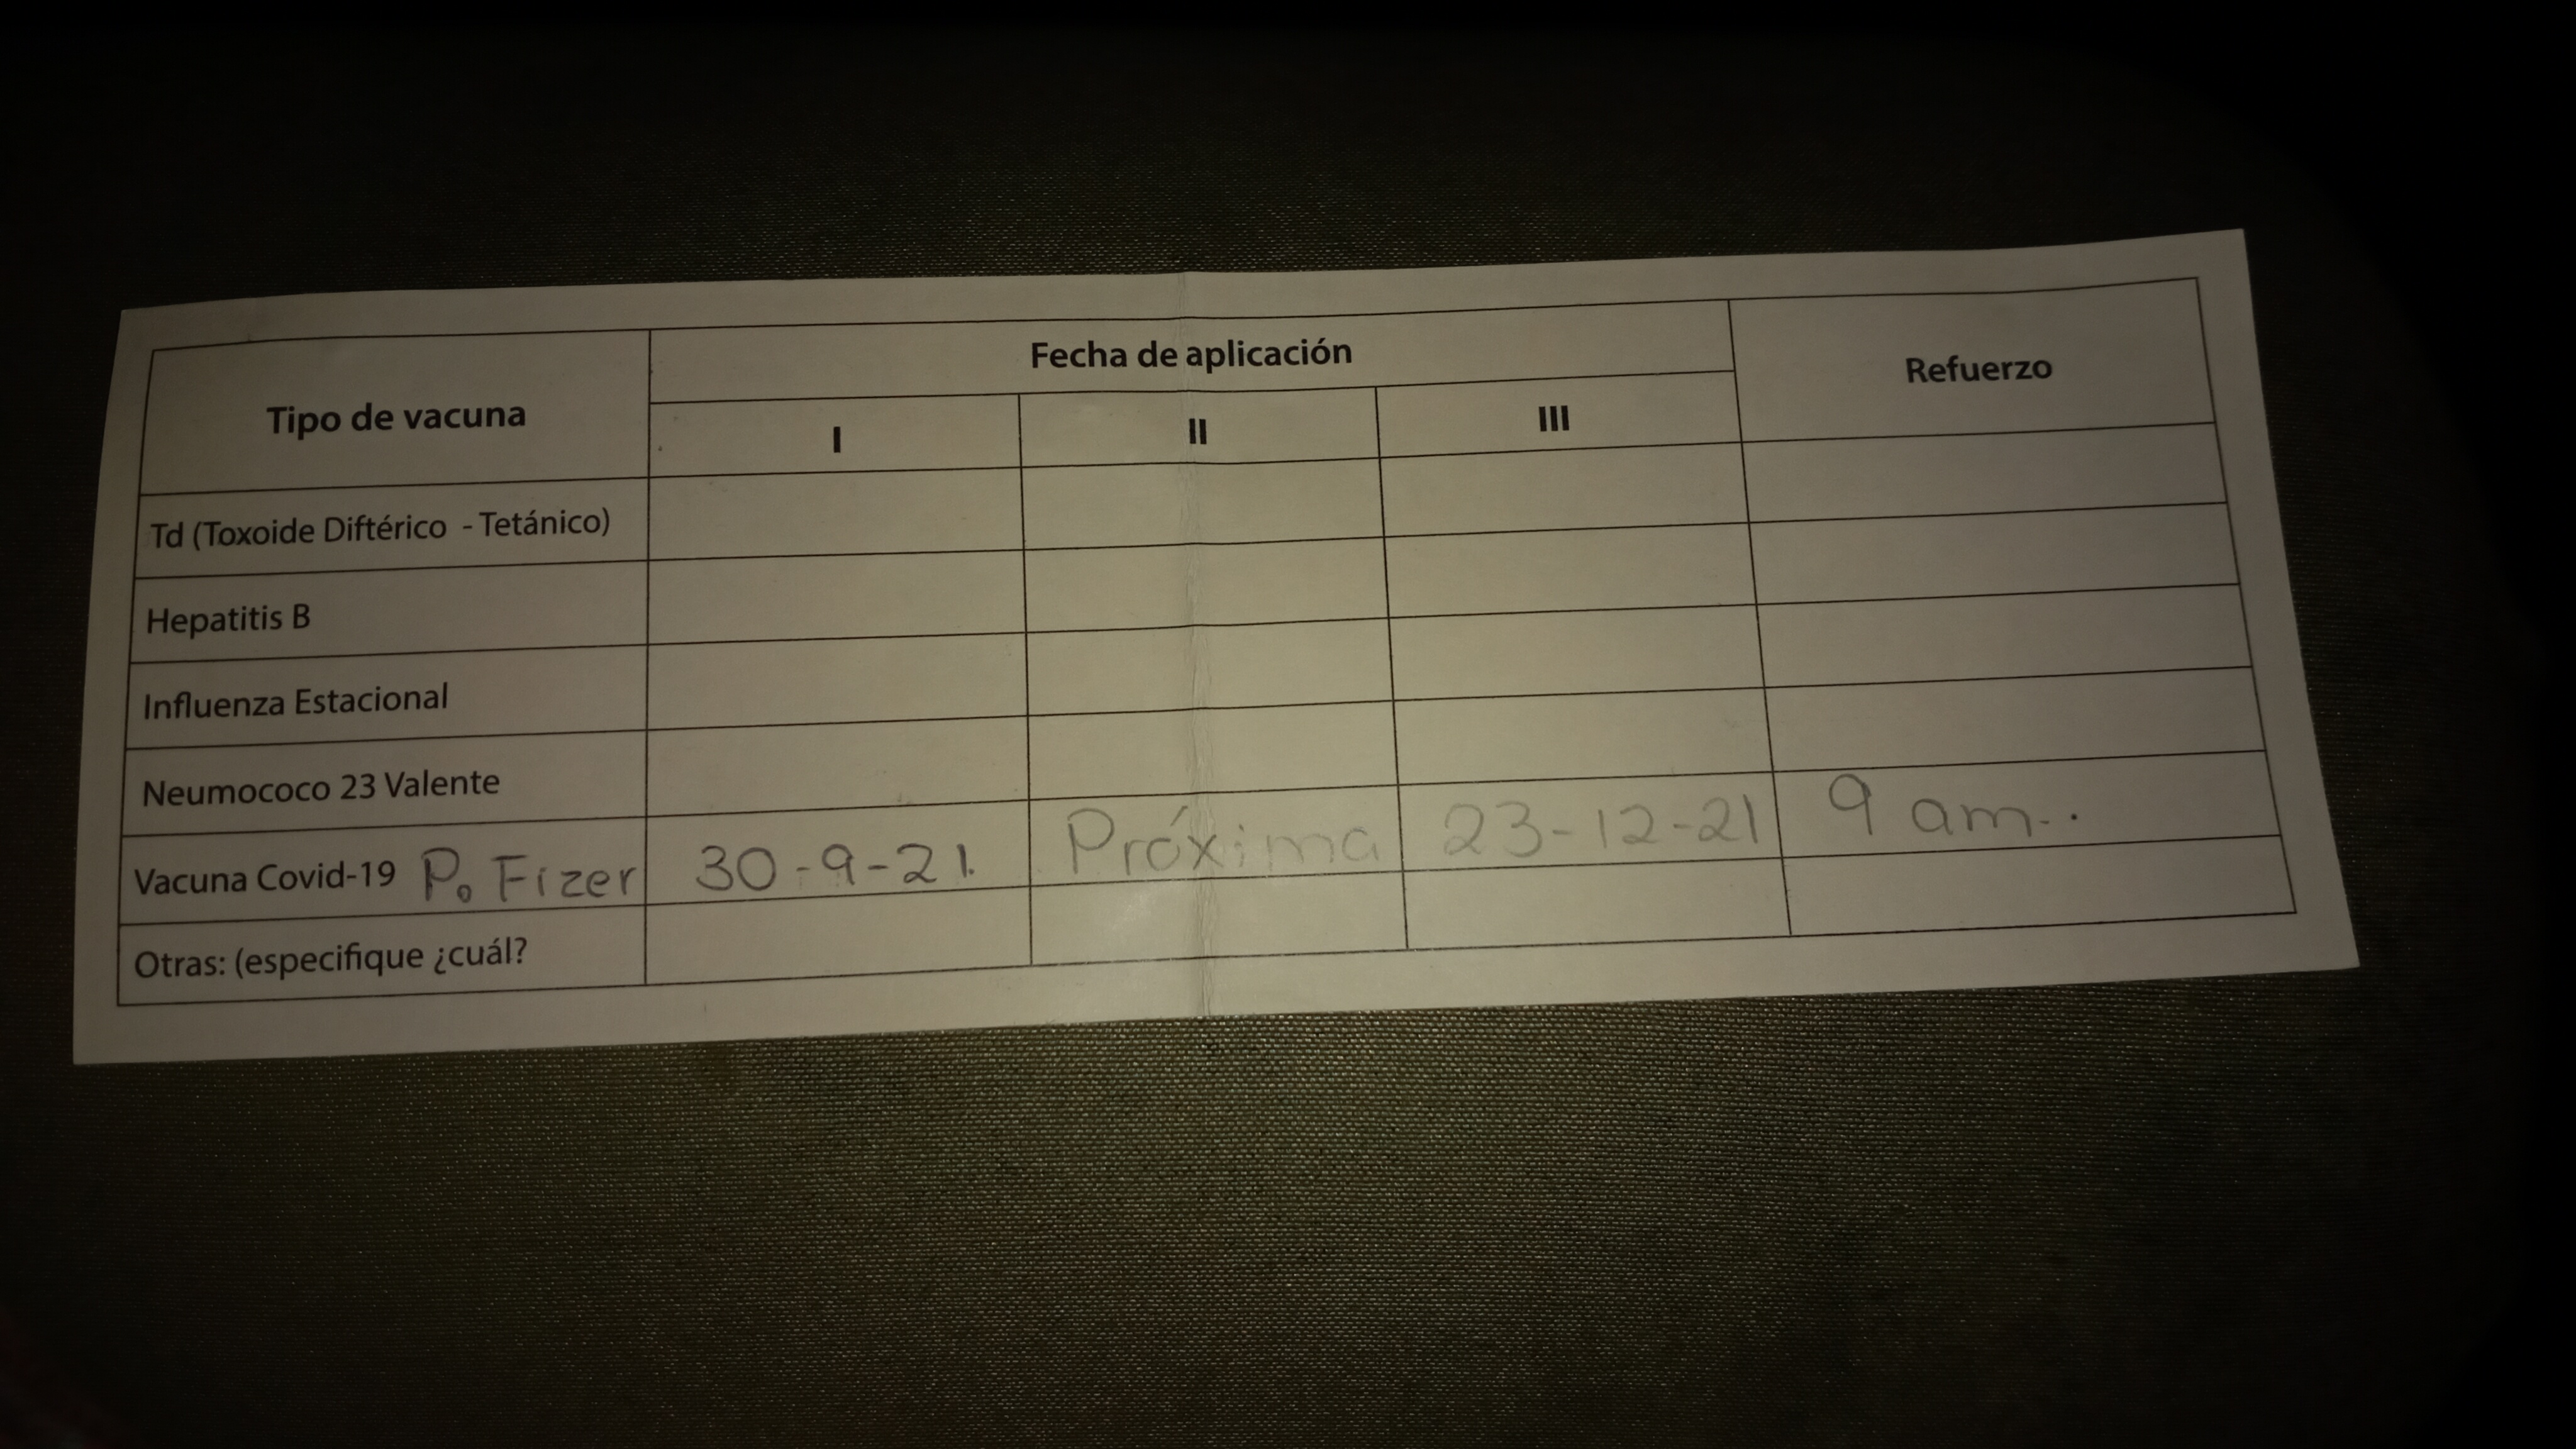 Tipo de vacuna
Fecha de aplicación
Refuerzo
I II III
Td (Toxoide Diftérico - Tetánico)
Hepatitis B
Influenza Estacional
Neumococo 23 Valente
Vacuna Covid-19 P. Fizer 30-9-21. Próxima 23-12-21 9 am..
Otras: (especifique ¿cuál?